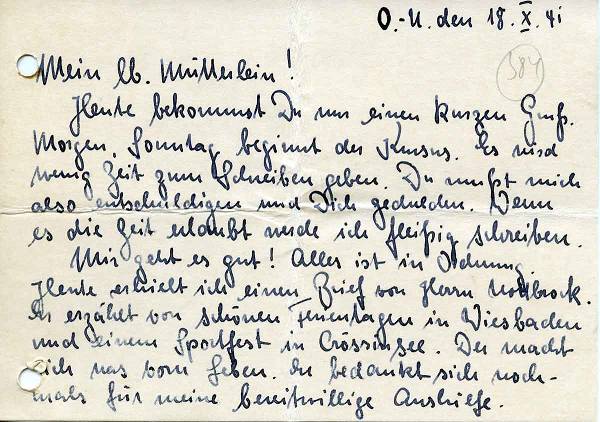 O.-U. den 18.X.41
384
Mein lb. Mütterlein!
Heute bekommst Du nur einen kurzen Gruß.
Morgen, Sonntag beginnt der Kursus. Es wird
wenig Zeit zum Schreiben geben. Du mußt mich
also entschuldigen und Dich gedulden. Wenn
es die Zeit erlaubt werde ich fleißig schreiben.
Mir geht es gut! Alles ist in Ordnung.
Heute erhielt ich einen Brief von Herrn
Er erzählt von schönen Ferientagen in Wiesbaden
und einem Sportfest in Crössinsee. Der macht
sich was vom Leben. Er bedankt sich noch-
mals für meine bereitwillige Aushilfe.